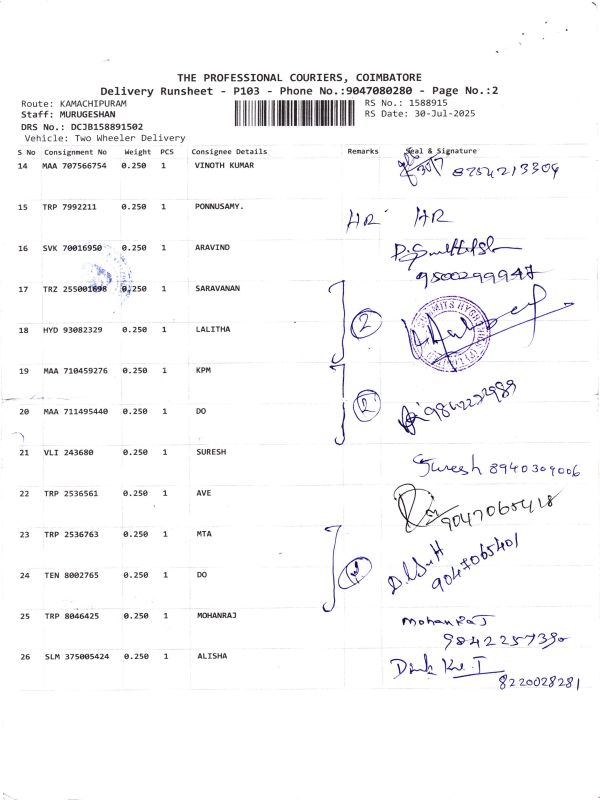 THE PROFESSIONAL COURIERS, COIMBATORE
Delivery Runsheet - P103 - Phone No.:9047080280 - Page No.:2
Route: KAMACHIPURAM
RS No.: 1588915
Staff: MURUGESHAN
RS Date: 30-Jul-2025
DRS No.: DCJB158891502
Vehicle: Two Wheeler Delivery
S No Consignment No Weight PCS Consignee Details Remarks Seal & Signature
14 MAA 707566754 0.250 1 VINOTH KUMAR 8754213304
15 TRP 7992211 0.250 1 PONNUSAMY. HR HR
16 SVK 70016950 0.250 1 ARAVIND
9500299947
17 TRZ 255001698 0.250 1 SARAVANAN
2
18 HYD 93082329 0.250 1 LALITHA
19 MAA 710459276 0.250 1 KPM
2
20 MAA 711495440 0.250 1 DO
21 VLI 243680 0.250 1 SURESH Suresh 8940309006
22 TRP 2536561 0.250 1 AVE 9047065418
23 TRP 2536763 0.250 1 MTA
24 TEN 8002765 0.250 1 DO 9047065401
25 TRP 8046425 0.250 1 MOHANRAJ mohanRaJ
9842257390
26 SLM 375005424 0.250 1 ALISHA
8220028281